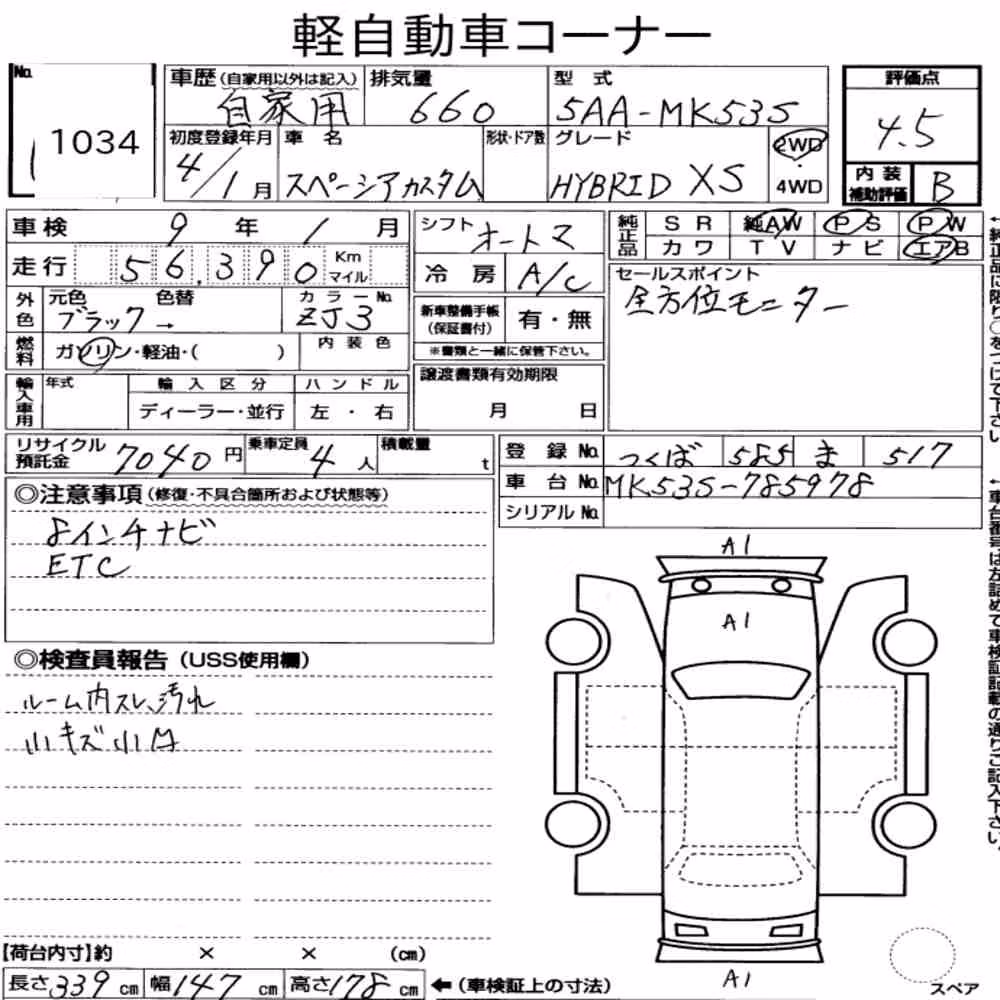 軽自動車コーナー
No. 1034
車歴 (自家用以外は記入) 自家用 排気量 660 型式 5AA-MK53S 評価点 4.5
初度登録年月 4/1月 車名 スペーシアカスタム 形状・ドア数 グレード HYBRID XS 2WD・4WD
内装補助評価 B
車検 9年 1月 シフト オートマ 純正品 SR 純AW PS PW
カワ TV ナビ エアB
走行 56,390 Km マイル 冷房 A/C セールスポイント
全方位モニター
外色 元色 ブラック → 色替 カラーNo. ZJ3 新車整備手帳(保証書付) 有・無
※書類と一緒に保管下さい。
燃料 ガソリン・軽油・( ) 内装色
輸入車用 年式 輸入区分 ハンドル 譲渡書類有効期限
ディーラー・並行 左・右 月 日
リサイクル預託金 7040円 乗車定員 4人 積載量 t 登録No. つくば 585 ま 517
車台No. MK53S-785978
シリアルNo.
◎注意事項(修復・不具合箇所および状態等)
8インチナビ
ETC
◎検査員報告 (USS使用欄)
ルーム内スレ、汚れ
小キズ小凹
A1
A1
A1
【荷台内寸】約 × × (cm)
長さ339cm 幅147cm 高さ178cm ←(車検証上の寸法)
スペア
←純正品に限り○をつけて下さい。
←車台番号は左詰めで車検証記載の通りご記入下さい。